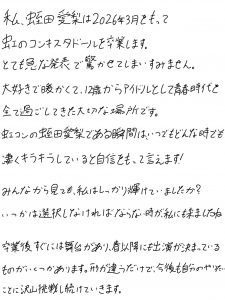 私、蛭田愛梨は2026年3月をもって
虹のコンキスタドールを卒業します。
とても急な発表で驚かせてしまいすみません。
大好きで暖かくて、12歳からアイドルとして青春時代を
全て過ごしてきた大切な場所です。
虹コンの蛭田愛梨である瞬間はいつもどんな時でも
凄くキラキラしていると自信をもって言えます!
みんなから見ても、私はしっかり輝けていましたか?
いつかは選択しなければならない時が私にも来ましたね
卒業後すぐには舞台があり、春以降にも出演が決まっている
ものがいくつかあります。形が違うだけで、今後も自分のやりたい
ことに沢山挑戦し続けていきます。